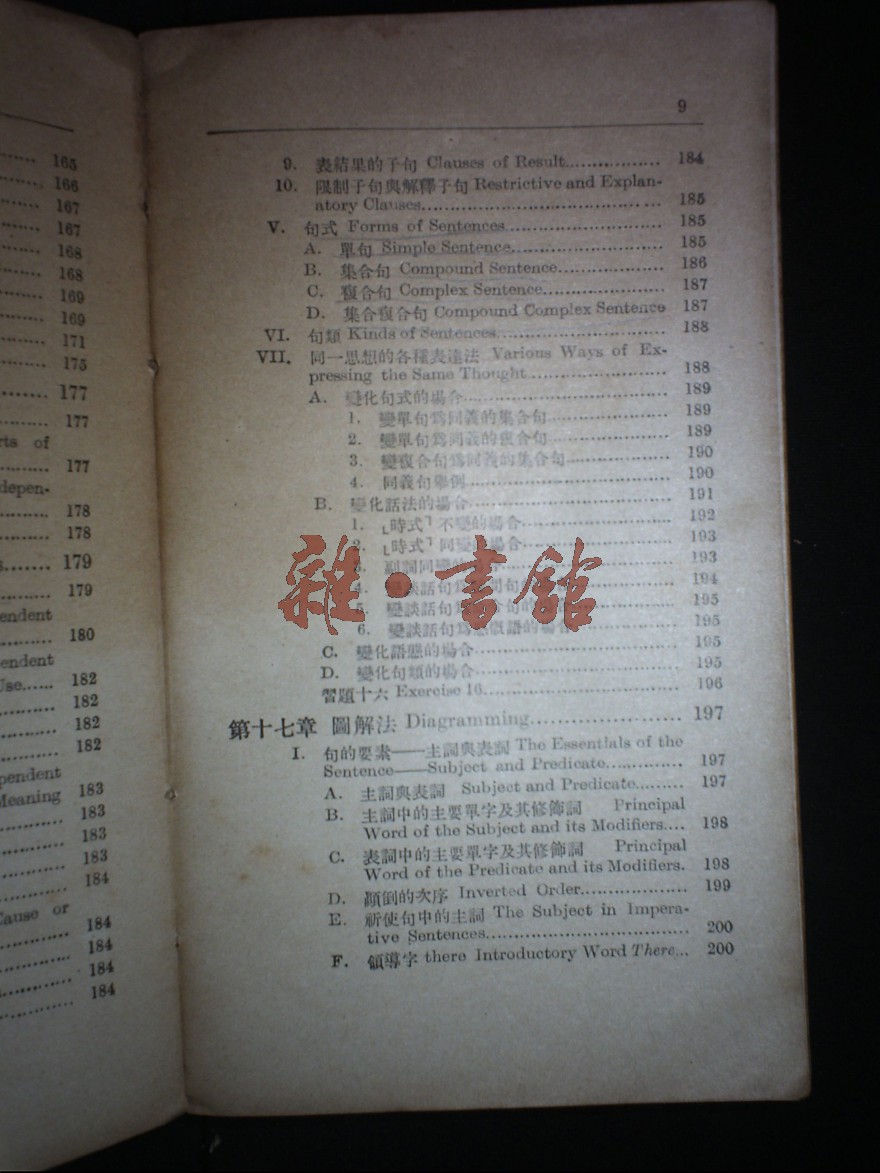 165
166
167
167
168
168
169
169
171
175
177
177
rts of
177
depen-
178
178
s....... 179
179
endent
180
pendent
Use...... 182
182
182
182
pendent
Meaning 183
183
183
183
184
Cause or
184
184
184
184
9
9. 表結果的子句 Clauses of Result.................. 184
10. 限制子句與解釋子句 Restrictive and Explan-
atory Clauses............................................. 185
V. 句式 Forms of Sentences.............................. 185
A. 單句 Simple Sentence............................. 185
B. 集合句 Compound Sentence.................... 186
C. 複合句 Complex Sentence....................... 187
D. 集合複合句 Compound Complex Sentence 187
VI. 句類 Kinds of Sentences................................ 188
VII. 同一思想的各種表達法 Various Ways of Ex-
pressing the Same Thought.......................... 188
A. 變化句式的場合.................................... 189
1. 變單句爲同義的集合句...................... 189
2. 變單句爲同義的複合句...................... 189
3. 變複合句爲同義的集合句................... 190
4. 同義句舉例..................................... 190
B. 變化話法的場合.................................... 191
1. 「時式」不變的場合......................... 192
2. 「時式」同變的場合......................... 193
3. 副詞同變的場合 193
4. 變談話句爲 問句的 194
5. 變談話句爲 句的 195
6. 變談話句爲 語的場合 195
C. 變化語態的場合.................................... 195
D. 變化句類的場合.................................... 195
習題十六 Exercise 16................................... 196
第十七章 圖解法 Diagramming...................... 197
I. 句的要素——主詞與表詞 The Essentials of the
Sentence——Subject and Predicate.............. 197
A. 主詞與表詞 Subject and Predicate......... 197
B. 主詞中的主要單字及其修飾詞 Principal
Word of the Subject and its Modifiers.... 198
C. 表詞中的主要單字及其修飾詞 Principal
Word of the Predicate and its Modifiers. 198
D. 顚倒的次序 Inverted Order................... 199
E. 祈使句中的主詞 The Subject in Impera-
tive Sentences.................................... 200
F. 領導字 there Introductory Word There... 200
雜·書館